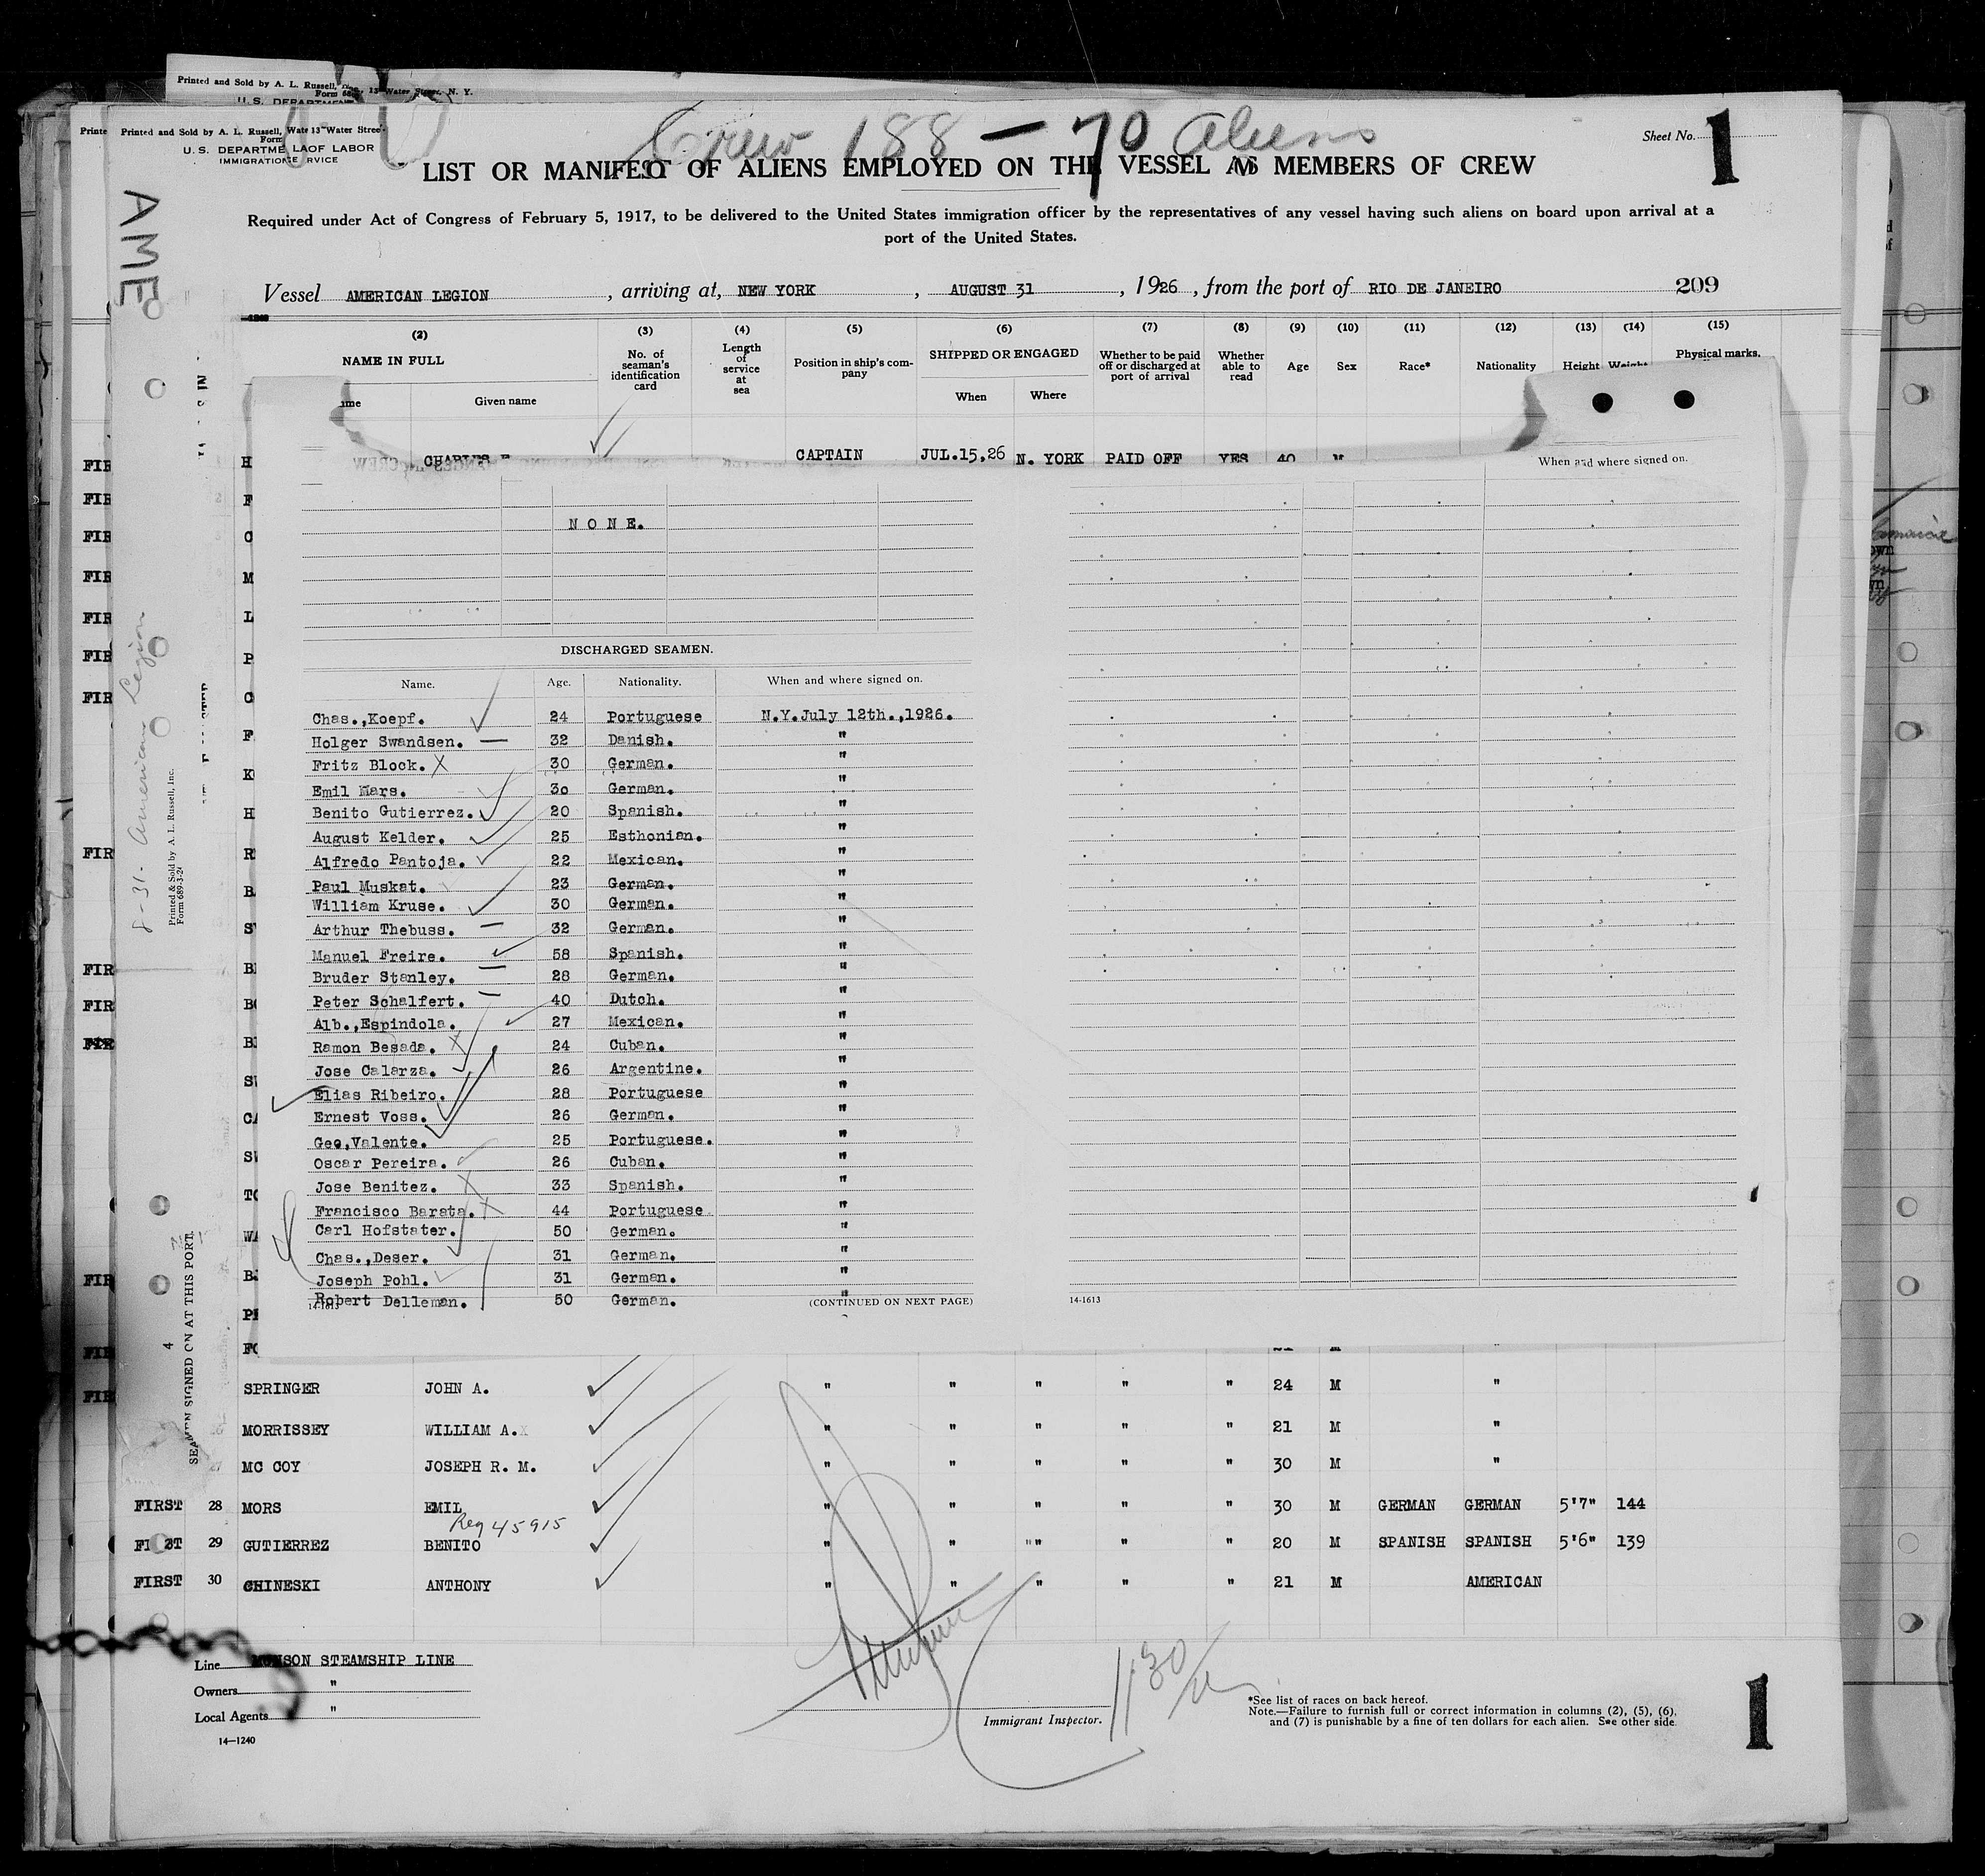 Printed and Sold by A. L. Russell,
13 Water Street, N. Y.
Printed and Sold by A. L. Russell,
U. S. DEPARTME
OF LABOR
IMMIGRATION
Crew 188 — 70 Aliens
Sheet No. 1
LIST OR MANIFEST OF ALIENS EMPLOYED ON THE VESSEL AS MEMBERS OF CREW
Required under Act of Congress of February 5, 1917, to be delivered to the United States immigration officer by the representatives of any vessel having such aliens on board upon arrival at a
port of the United States.
Vessel AMERICAN LEGION, arriving at, NEW YORK, AUGUST 31, 1926, from the port of RIO DE JANEIRO 209
(2) (3) (4) (5) (6) (7) (8) (9) (10) (11) (12) (13) (14) (15)
NAME IN FULL No. of seaman's identification card Length of service at sea Position in ship's com-pany SHIPPED OR ENGAGED Whether to be paid off or discharged at port of arrival Whether able to read Age Sex Race* Nationality Height Weight Physical marks.
Given name When Where
CAPTAIN JUL.15,26 N. YORK PAID OFF YES 40 M
When and where signed on.
NONE.
DISCHARGED SEAMEN.
Name. Age. Nationality. When and where signed on.
Chas.,Koepf. 24 Portuguese N.Y.July 12th.,1926.
Holger Swandsen. 32 Danish. "
Fritz Block. 30 German. "
Emil Mars. 30 German. "
Benito Gutierrez. 20 Spanish. "
August Kelder. 25 Esthonian. "
Alfredo Pantoja. 22 Mexican. "
Paul Muskat. 23 German. "
William Kruse. 30 German. "
Arthur Thebuss. 32 German. "
Manuel Freire. 58 Spanish. "
Bruder Stanley. 28 German. "
Peter Schalfert. 40 Dutch. "
Alb.,Espindola. 27 Mexican. "
Ramon Besada. 24 Cuban. "
Jose Calarza. 26 Argentine. "
Elias Ribeiro. 28 Portuguese "
Ernest Voss. 26 German. "
Geo,Valente. 25 Portuguese. "
Oscar Pereira. 26 Cuban. "
Jose Benitez. 33 Spanish. "
Francisco Barata. 44 Portuguese "
Carl Hofstater. 50 German. "
Chas.,Deser. 31 German. "
Joseph Pohl. 31 German. "
Robert Delleman. 50 German. "
(CONTINUED ON NEXT PAGE) 14-1613
SPRINGER JOHN A. " " " " " 24 M "
MORRISSEY WILLIAM A. " " " " " 21 M "
MC COY JOSEPH R. M. " " " " " 30 M "
FIRST 28 MORS EMIL " " " " " 30 M GERMAN GERMAN 5'7" 144
Reg 45915
29 GUTIERREZ BENITO " " " " " 20 M SPANISH SPANISH 5'6" 139
FIRST 30 CHINESKI ANTHONY " " " " " 21 M AMERICAN
Line MUNSON STEAMSHIP LINE
Owners "
Local Agents "
14—1240
Immigrant Inspector.
1130
*See list of races on back hereof.
Note.—Failure to furnish full or correct information in columns (2), (5), (6),
and (7) is punishable by a fine of ten dollars for each alien. See other side.
1
AME
8-31- American Legion
Printed & Sold by A. L. Russell, Inc.
Form 689-3-24
SEAMEN SIGNED ON AT THIS PORT.
4